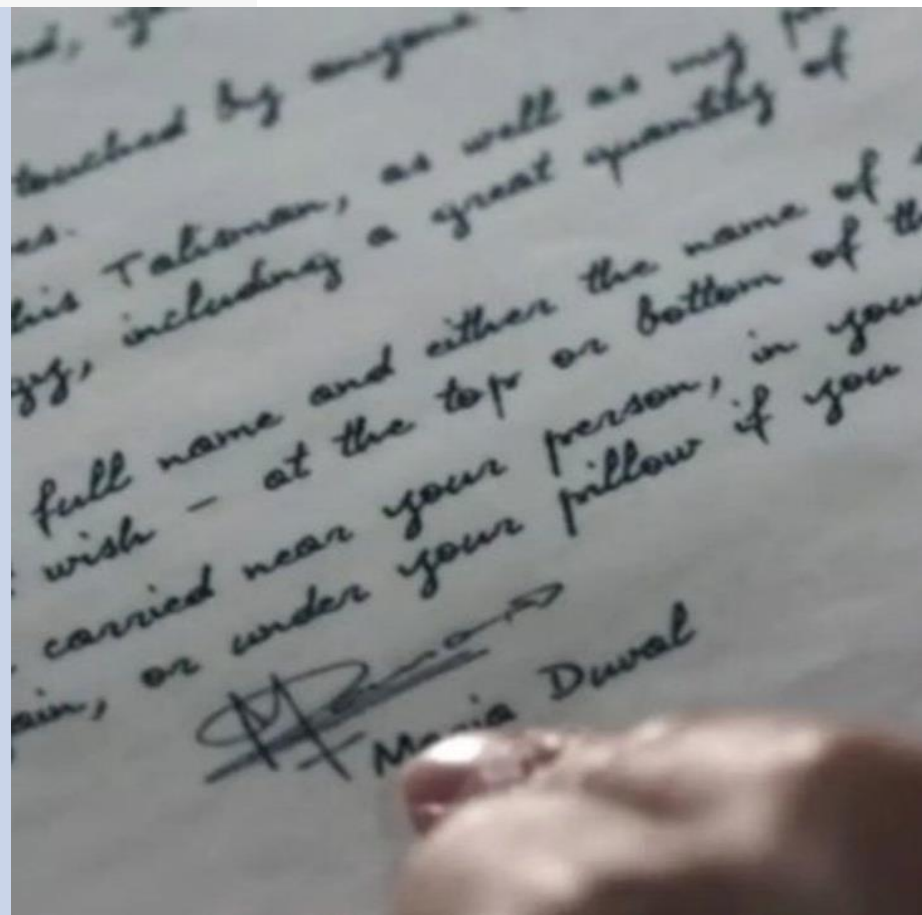 touched by anyone
es.
his Talisman, as well as my
gy, including a great quantity of
full name and either the name of
wish – at the top or bottom of th
carried near your person, in your
ain, or under your pillow if you
Maria Duval